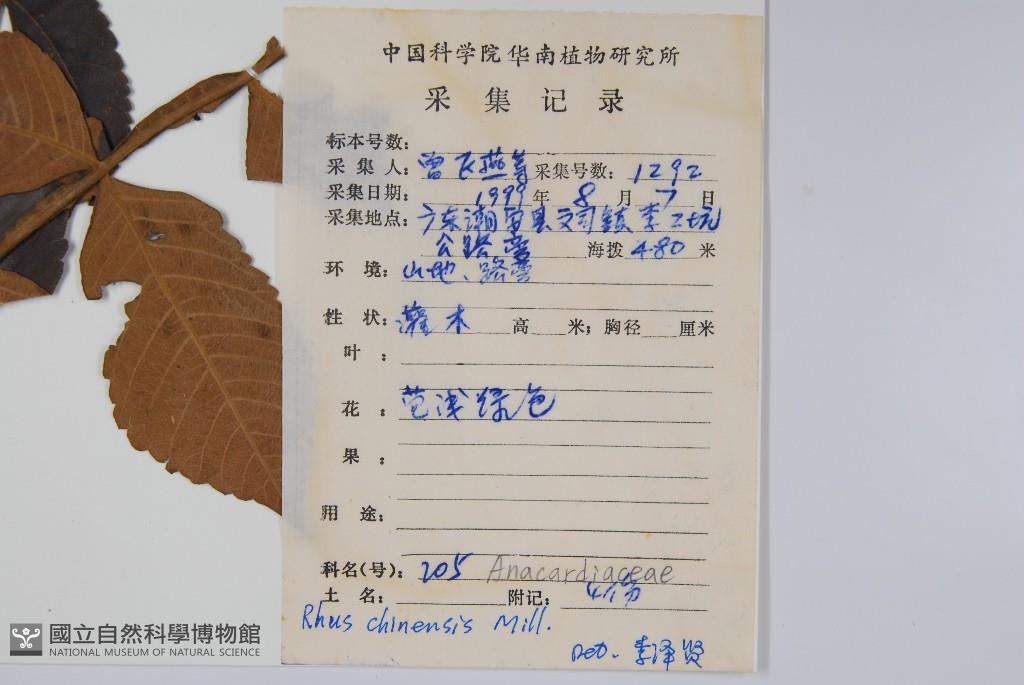 中国科学院华南植物研究所
采集记录
标本号数：
采集人：曾飞燕等 采集号数：1292
采集日期：1999年8月7日
采集地点：广东潮安县文祠镇李工坑
公路旁 海拨480米
环境：山地、路旁
性状：灌木 高 米；胸径 厘米
叶：
花：苞浅绿色
果：
用途：
科名(号)：205 Anacardiaceae
土名： 附记：4份
Rhus chinensis Mill.
Det. 李泽贤
國立自然科學博物館
NATIONAL MUSEUM OF NATURAL SCIENCE